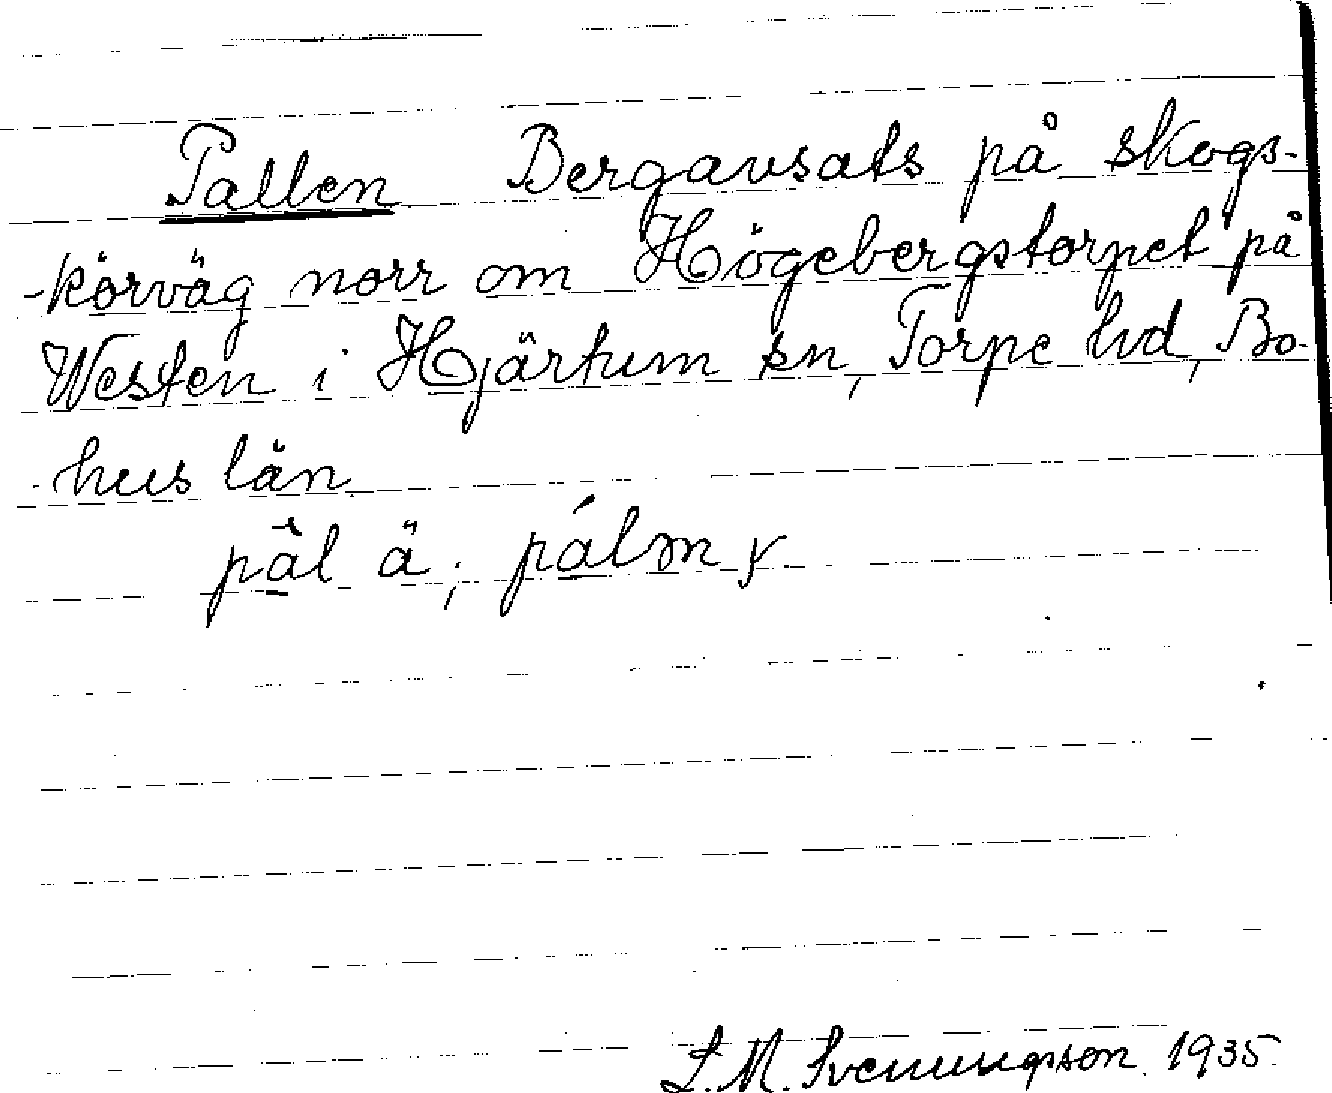 Pallen Bergavsats på skogs-
-körväg norr om Högebergstorpet på
Westen i Hjärtum sn, Torpe hd, Bo-
-hus län
L.M. Svenungsson. 1935.